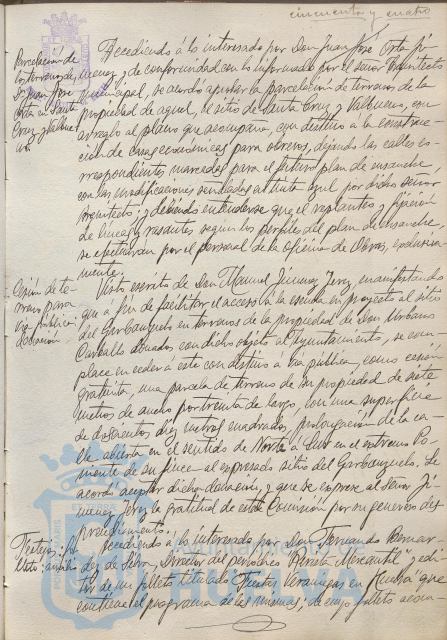 cincuenta y cuatro
Parcelación de
los terrenos de
D. Juan José
Orta en Santa
Cruz y Valbue-
no.
Accediendo á lo interesado por Don Juan José Orta Ji-
menez y de conformidad con lo informado por el señor Arquitecto
municipal, se acordó aprobar la parcelación de terrenos de la
propiedad de aquel, al sitio de Santa Cruz y Valbueno, con
arreglo al plano que acompaña, con destino á la construc-
ción de casas económicas para obreros, dejando las calles co-
rrespondientes marcadas para el futuro plan de ensanche
con las modificaciones señaladas en tinta azul por dicho señor
Arquitecto; y debiendo entenderse que el replanteo y fijación
de líneas y rasantes según los perfiles del plan de ensanche,
se efectuarán por el personal de la Oficina de Obras, exclusiva-
mente.
Cesión de te-
rrenos para
vía pública
donación.
Visto escrito de Don Manuel Jimenez Jerez, manifestando
que a fin de facilitar el acceso a la escuela en proyecto al sitio
del Garbanzuelo en terrenos de la propiedad de Don Urbano
Carballo donados con dicho objeto al Ayuntamiento, se com-
place en ceder á este con destino a vía pública, como cesión
gratuita, una parcela de terreno de su propiedad de siete
metros de ancho por treinta de largo, con una superficie
de doscientos diez metros cuadrados, prolongación de la ca-
lle abierta en el sentido de Norte a Sur en el extremo Po-
niente de su finca al expresado sitio del Garbanzuelo. Se
acordó aceptar dicha donación, y que se exprese al señor Ji-
menez Jerez la gratitud de esta Comisión por su generoso des-
prendimiento.
Festejos:
Accediendo a lo interesado por Don Fernando Bernar-
dez de Selva, Director del periódico "Revista Mercantil" y edi-
tor de un folleto titulado "Fiestas Veraniegas en Huelva" que
contiene el programa de las mismas; de cuyo folleto acom-
Ayuntamiento de
HUELVA